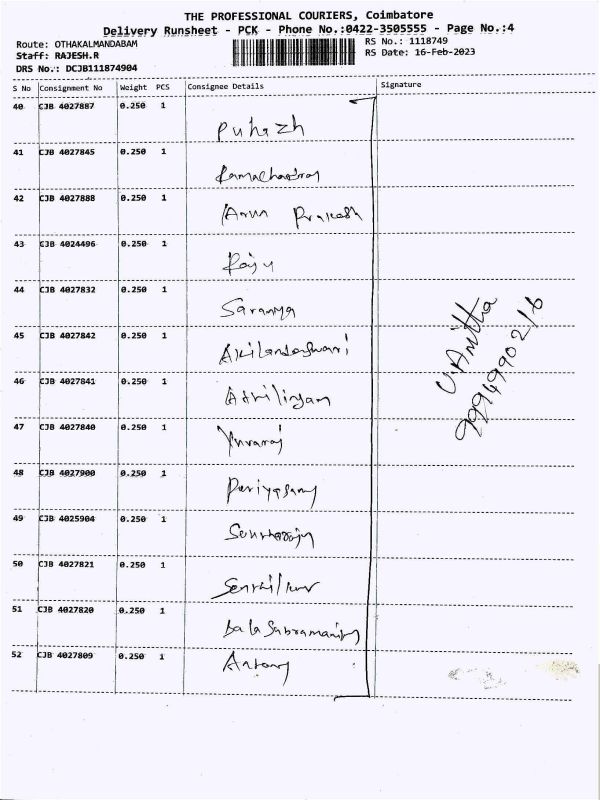 THE PROFESSIONAL COURIERS, Coimbatore
Delivery Runsheet - PCK - Phone No.:0422-3505555 - Page No.:4
Route: OTHAKALMANDABAM
RS No.: 1118749
Staff: RAJESH.R
RS Date: 16-Feb-2023
DRS No.: DCJB111874904
S No Consignment No Weight PCS Consignee Details Signature
40 CJB 4027887 0.250 1 Puhazh
41 CJB 4027845 0.250 1 Ramachandran
42 CJB 4027888 0.250 1 Arun Prakash
43 CJB 4024496 0.250 1 Raju
44 CJB 4027832 0.250 1 Saranya
45 CJB 4027842 0.250 1 Akilandeshwari
46 CJB 4027841 0.250 1
47 CJB 4027840 0.250 1 Yuvaraj
48 CJB 4027900 0.250 1 Periyasamy
49 CJB 4025904 0.250 1
50 CJB 4027821 0.250 1
51 CJB 4027820 0.250 1 Balasubramaniam
52 CJB 4027809 0.250 1 Antony
V. Anitha
9994990216